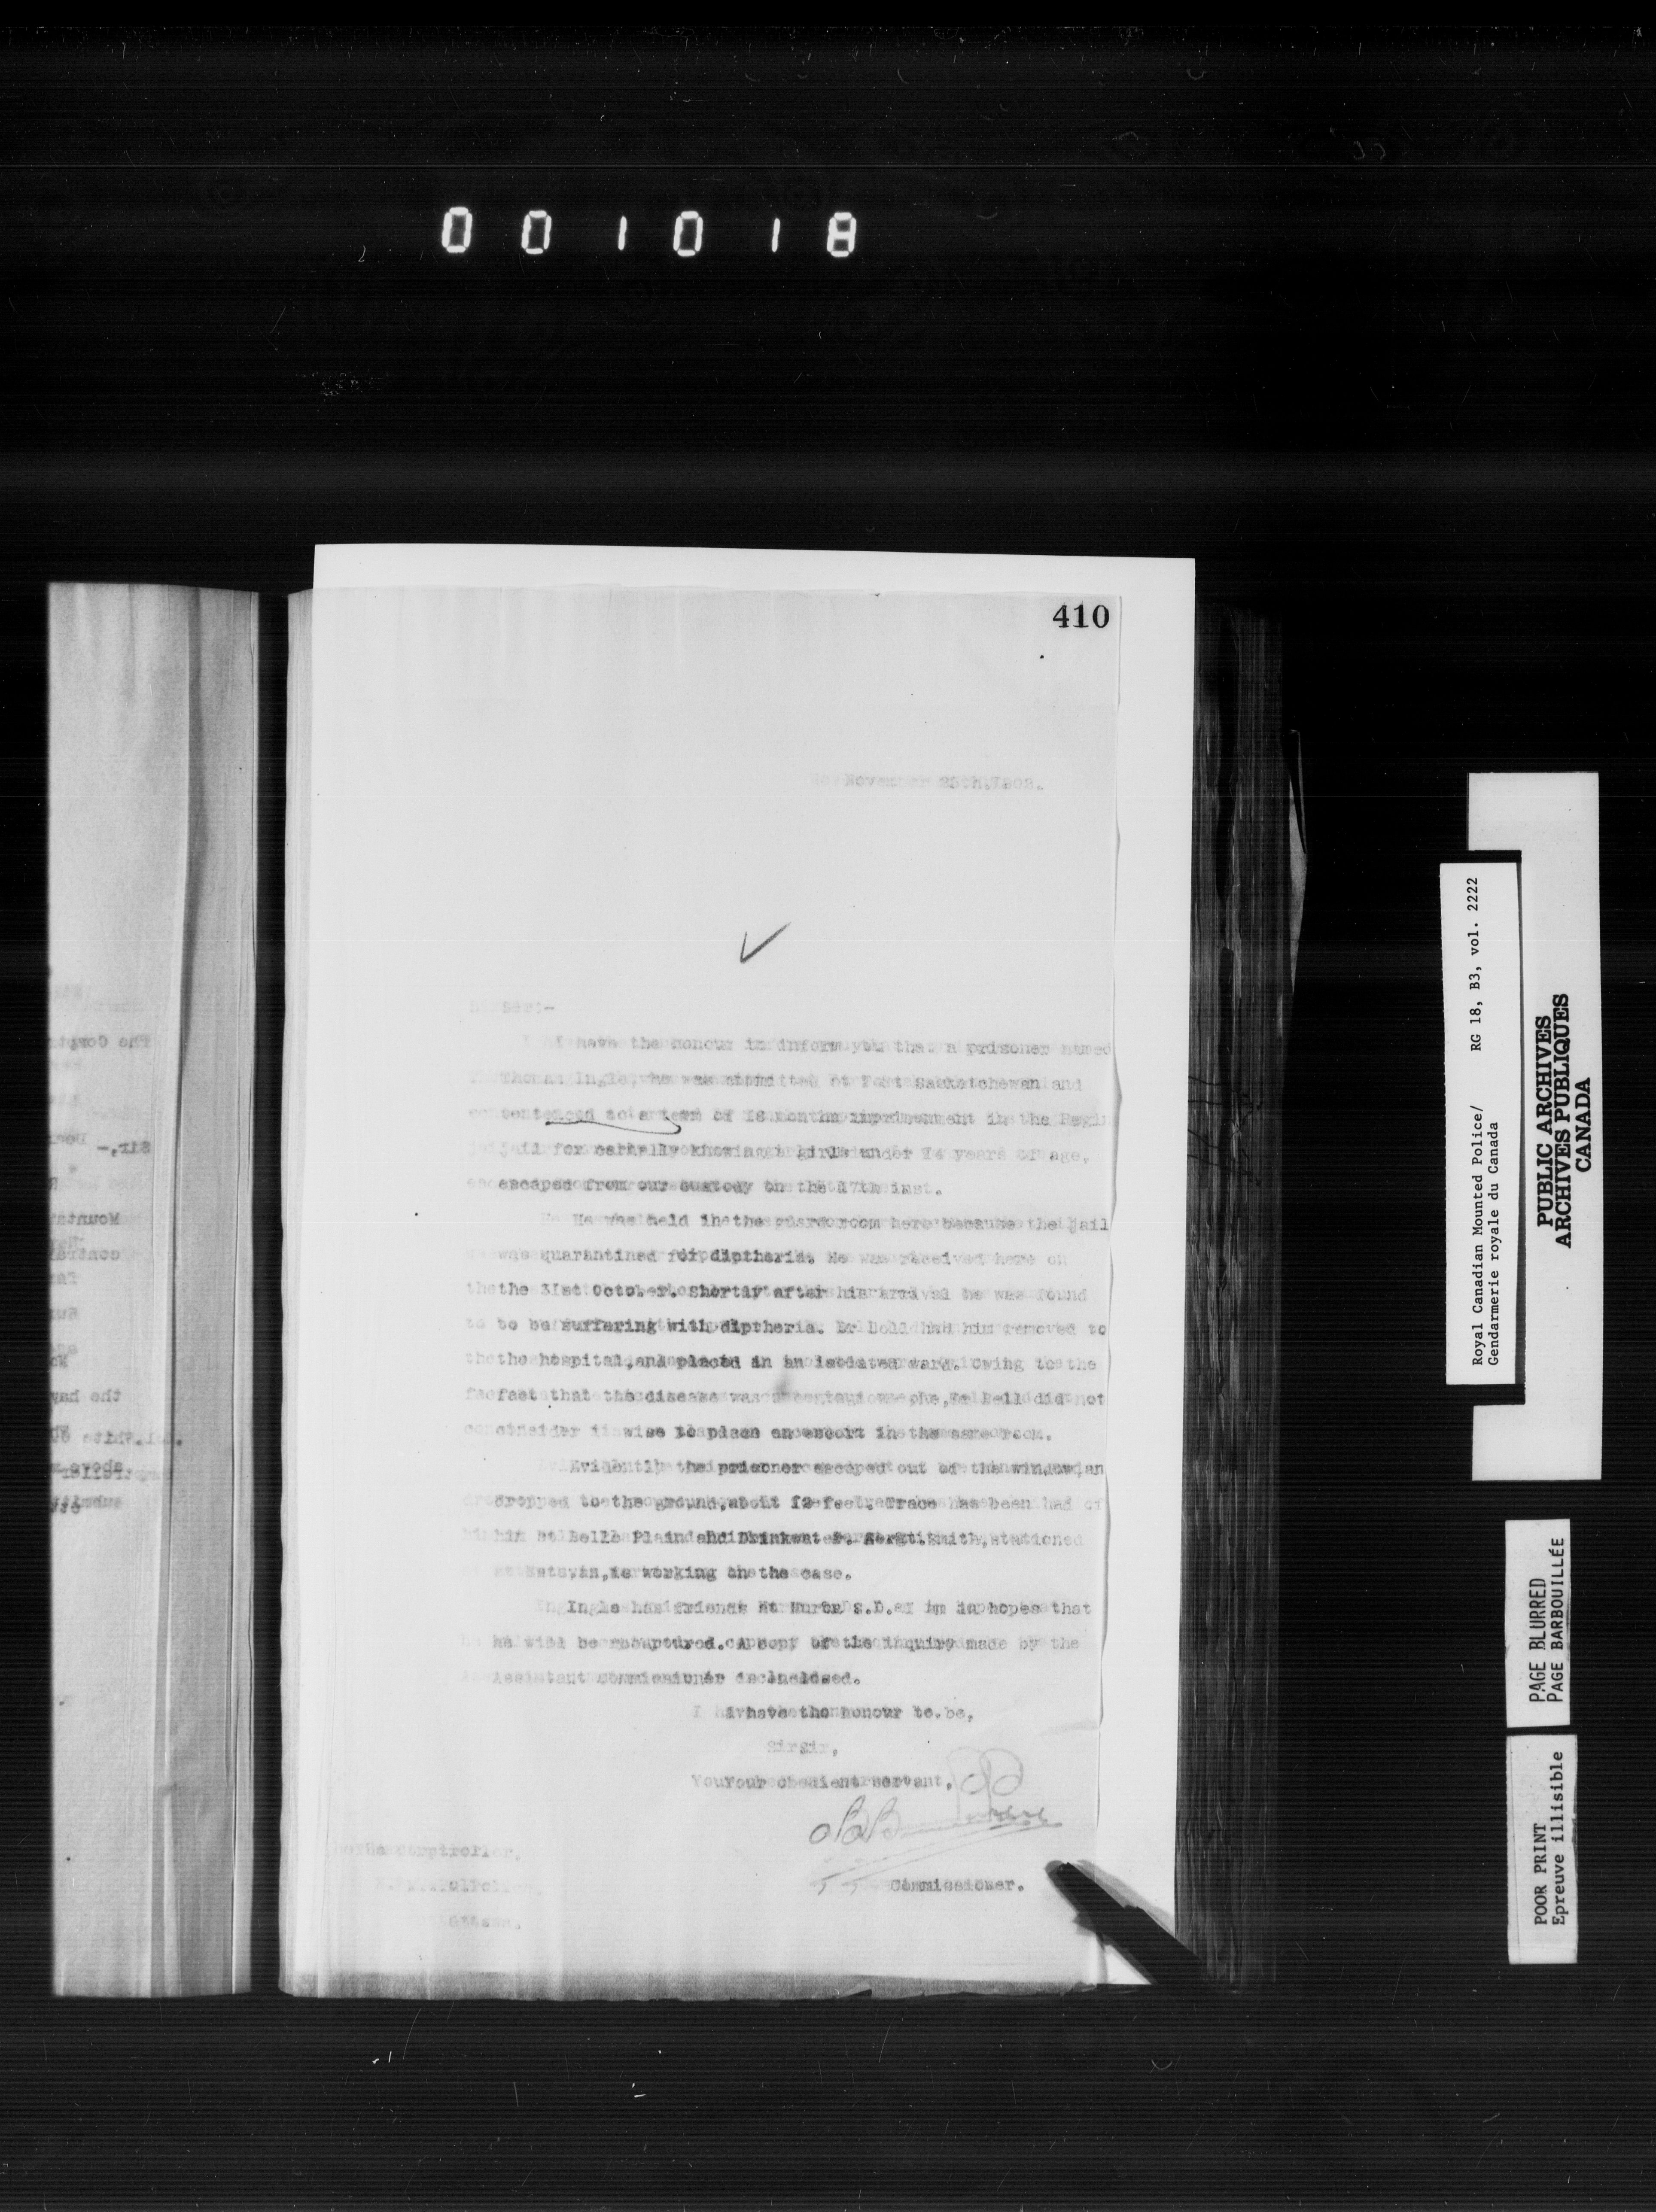 001018
410
November 1902.
Sir:-
I have the honour to inform you that a prisoner named
Thomas Ingle, who was committed at Fort Saskatchewan and
sentenced to a term of 18 months imprisonment in the Regi
jail for carnally knowing a girl under 14 years of age,
escaped from our custody on the 17th inst.
He was held in the guard room here because the jail
was quarantined for diptheria. He was received here on
the 31st October. Shortly after his arrival he was found
to be suffering with diptheria. Dr Bell had him removed to
the hospital, and placed in an isolated ward. Owing to the
fact that the disease was contagious, Dr Bell did not
consider it wise to place an escort in the same room.
Evidently the prisoner escaped out of the window, an
dropped to the ground, about 12 feet. Trace has been had of
him at Belle Plain and Drinkwater. Sergt. Smith, stationed
at Estevan, is working on the case.
Ingle has friends at N.D. I am in hopes that
he will be recaptured. A copy of the inquiry made by the
Assistant Commissioner is enclosed.
I have the honour to be,
Sir,
Your obedient servant,
Commissioner.
The Comptroller,
Ottawa.
Royal Canadian Mounted Police/ RG 18, B3, vol. 2222
Gendarmerie royale du Canada
PUBLIC ARCHIVES
ARCHIVES PUBLIQUES
CANADA
PAGE BLURRED
PAGE BARBOUILLÉE
POOR PRINT
Epreuve illisible